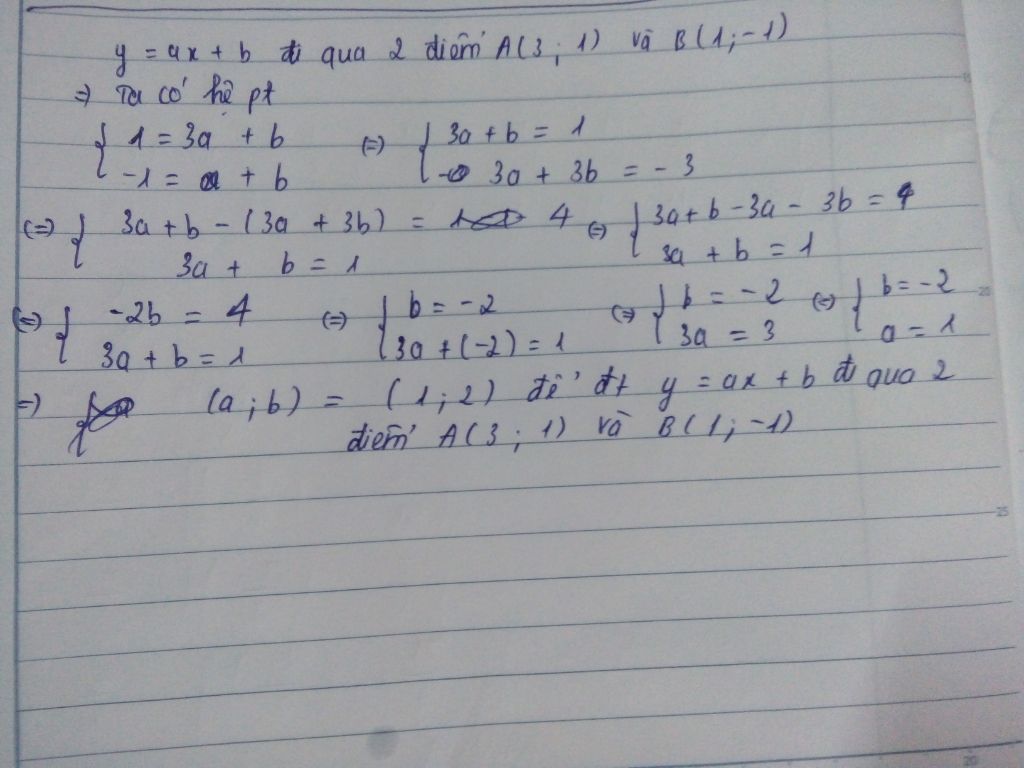 y = ax + b đi qua 2 điểm A(3 ; 1) và B(1 ; -1)
=> Ta có hệ pt
{ 1 = 3a + b (=) { 3a + b = 1
-1 = a + b 3a + 3b = -3
(=) { 3a + b - (3a + 3b) = 4 (=) { 3a + b - 3a - 3b = 4
3a + b = 1 3a + b = 1
(=) { -2b = 4 (=) { b = -2 (=) { b = -2 (=) { b = -2
3a + b = 1 3a + (-2) = 1 3a = 3 a = 1
=) (a ; b) = (1 ; 2) để đt y = ax + b đi qua 2
điểm A(3 ; 1) và B(1 ; -1)
25
25
20